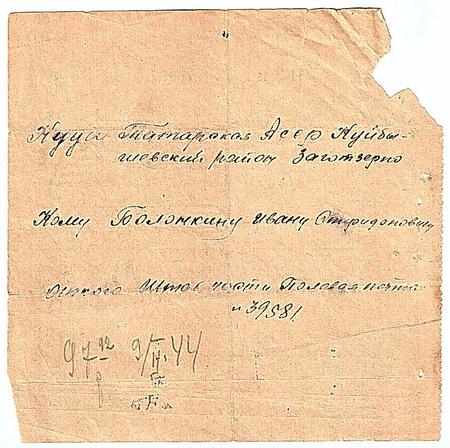 Куда Татарская Асср Куйбы-
шевский район Заготзерно
Кому Болонкину Ивану Спиридоновичу
от кого Штаб части Полевая почта
№ 39581
97 92 9/IV 44
р